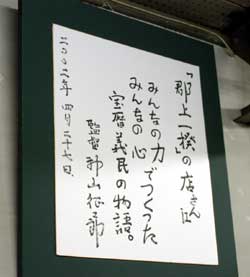 「郡上一揆」の店さん江
みんなの力でつくった
みんなの心
宝暦義民の物語。
監督神山征二郎
二〇〇二年四月二十七日、